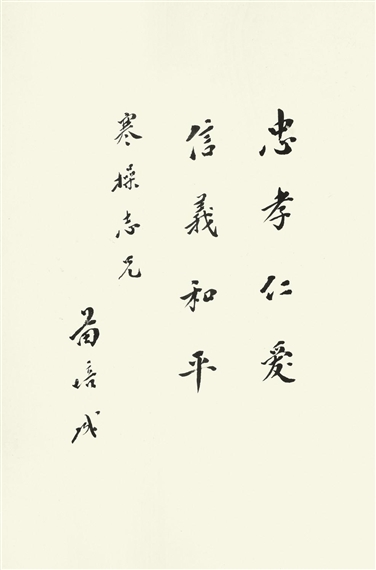 忠孝仁愛
信義和平
寒操志兄
苗培成